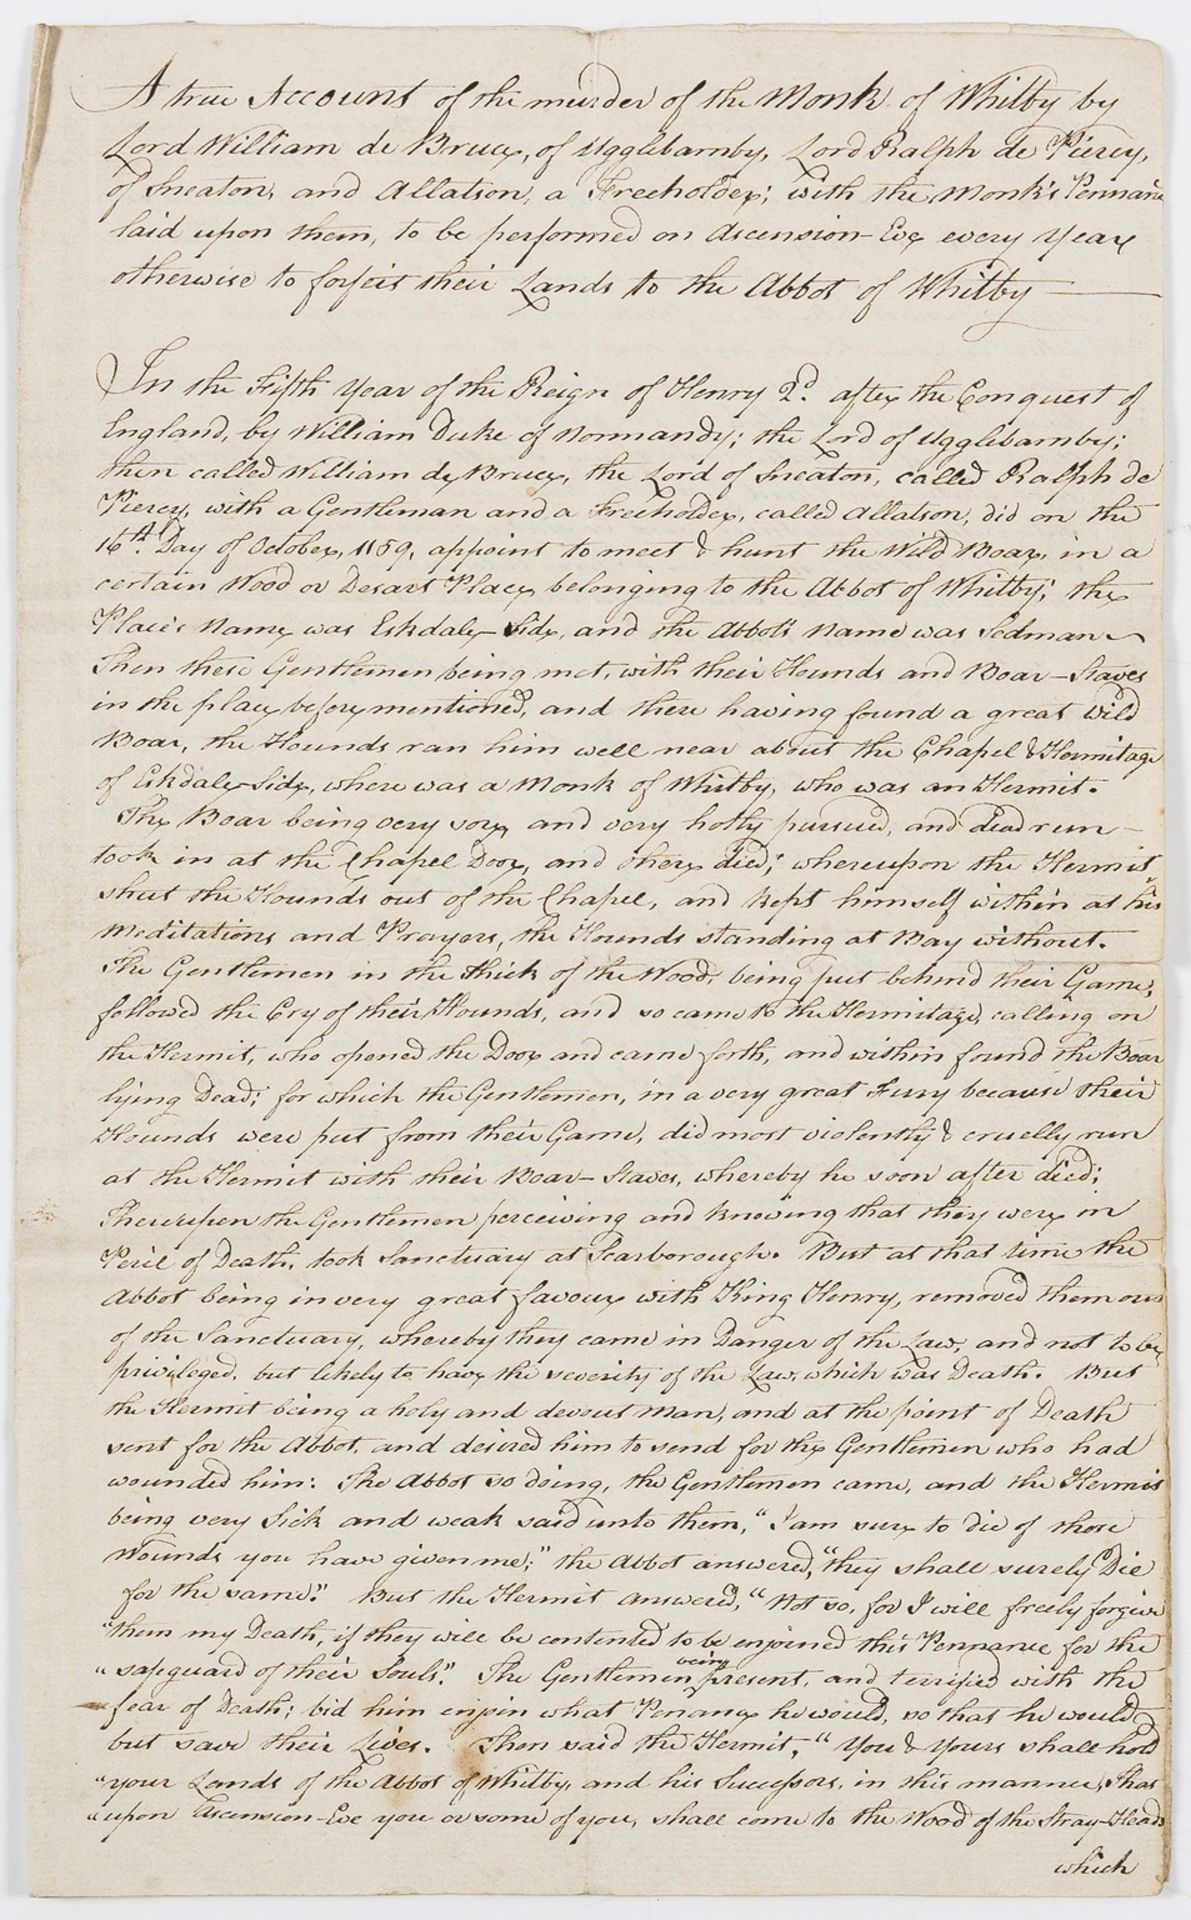 A true Account of the murder of the Monk of Whitby by
Lord William de Bruce, of Ugglebarnby, Lord Ralph de Piercy,
of Sneaton, and Allatson, a Freeholder; with the Monk's Pennance
laid upon them, to be performed on Ascension-Eve every Year
otherwise to forfeit their Lands to the Abbot of Whitby
In the Fifth Year of the Reign of Henry 2d. after the Conquest of
England, by William Duke of Normandy; the Lord of Ugglebarnby;
then called William de Bruce, the Lord of Sneaton, called Ralph de
Piercy, with a Gentleman and a Freeholder, called Allatson, did on the
16th. Day of October, 1159, appoint to meet & hunt the Wild Boar, in a
certain Wood or Desart Place belonging to the Abbot of Whitby; the
Place's Name was Eskdale-Side, and the Abbot's Name was Sedman
Then these Gentlemen being met, with their Hounds and Boar-Staves
in the place before mentioned, and there having found a great wild
Boar, the Hounds ran him well near about the Chapel & Hermitage
of Eskdale-Side, where was a Monk of Whitby, who was an Hermit.
The Boar being very sore, and very hotly pursued, and dead run
took in at the Chapel Door, and there died; whereupon the Hermit
shut the Hounds out of the Chapel, and kept himself within at his
Meditations and Prayers, the Hounds standing at Bay without.
The Gentlemen in the thick of the Wood, being put behind their Game,
followed the Cry of their Hounds, and so came to the Hermitage, calling on
the Hermit, who opened the Door and came forth, and within found the Boar
lying Dead; for which the Gentlemen, in a very great Fury because their
Hounds were put from their Game, did most violently & cruelly run
at the Hermit with their Boar-Staves, whereby he soon after died;
Thereupon the Gentlemen perceiving and knowing that they were in
Peril of Death, took Sanctuary at Scarborough. But at that time the
Abbot being in very great favour with King Henry, removed them out
of the Sanctuary, whereby they came in Danger of the Law, and not to be
privileged, but likely to have the severity of the Law, which was Death. But
the Hermit being a holy and devout Man, and at the point of Death
sent for the Abbot, and desired him to send for the Gentlemen who had
wounded him: The Abbot so doing, the Gentlemen came, and the Hermit
being very Sick and weak said unto them, "I am sure to die of those
Wounds you have given me;" the Abbot answered, "they shall surely Die
for the same." But the Hermit answered, "Not so, for I will freely forgive
"them my Death, if they will be contented to be enjoined this Pennance for the
"safeguard of their Souls". The Gentlemen being present, and terrified with the
fear of Death; bid him enjoin what Penance he would, so that he would
but save their Lives. Then said the Hermit, "You & Yours shall hold
"your Lands of the Abbot of Whitby, and his Successors, in this manner, That
"upon Ascension-Eve you or some of you, shall come to the Wood of the Stray-Heads
which